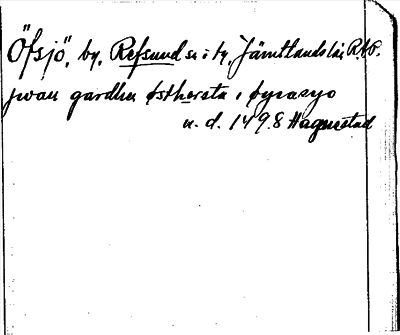 "Öfsjö", by, Refsund sn i ty, Jämtlands län R.A.P.
jwan gardhu østhersta i øyrasyo
u. d. 1498 Hagnestad